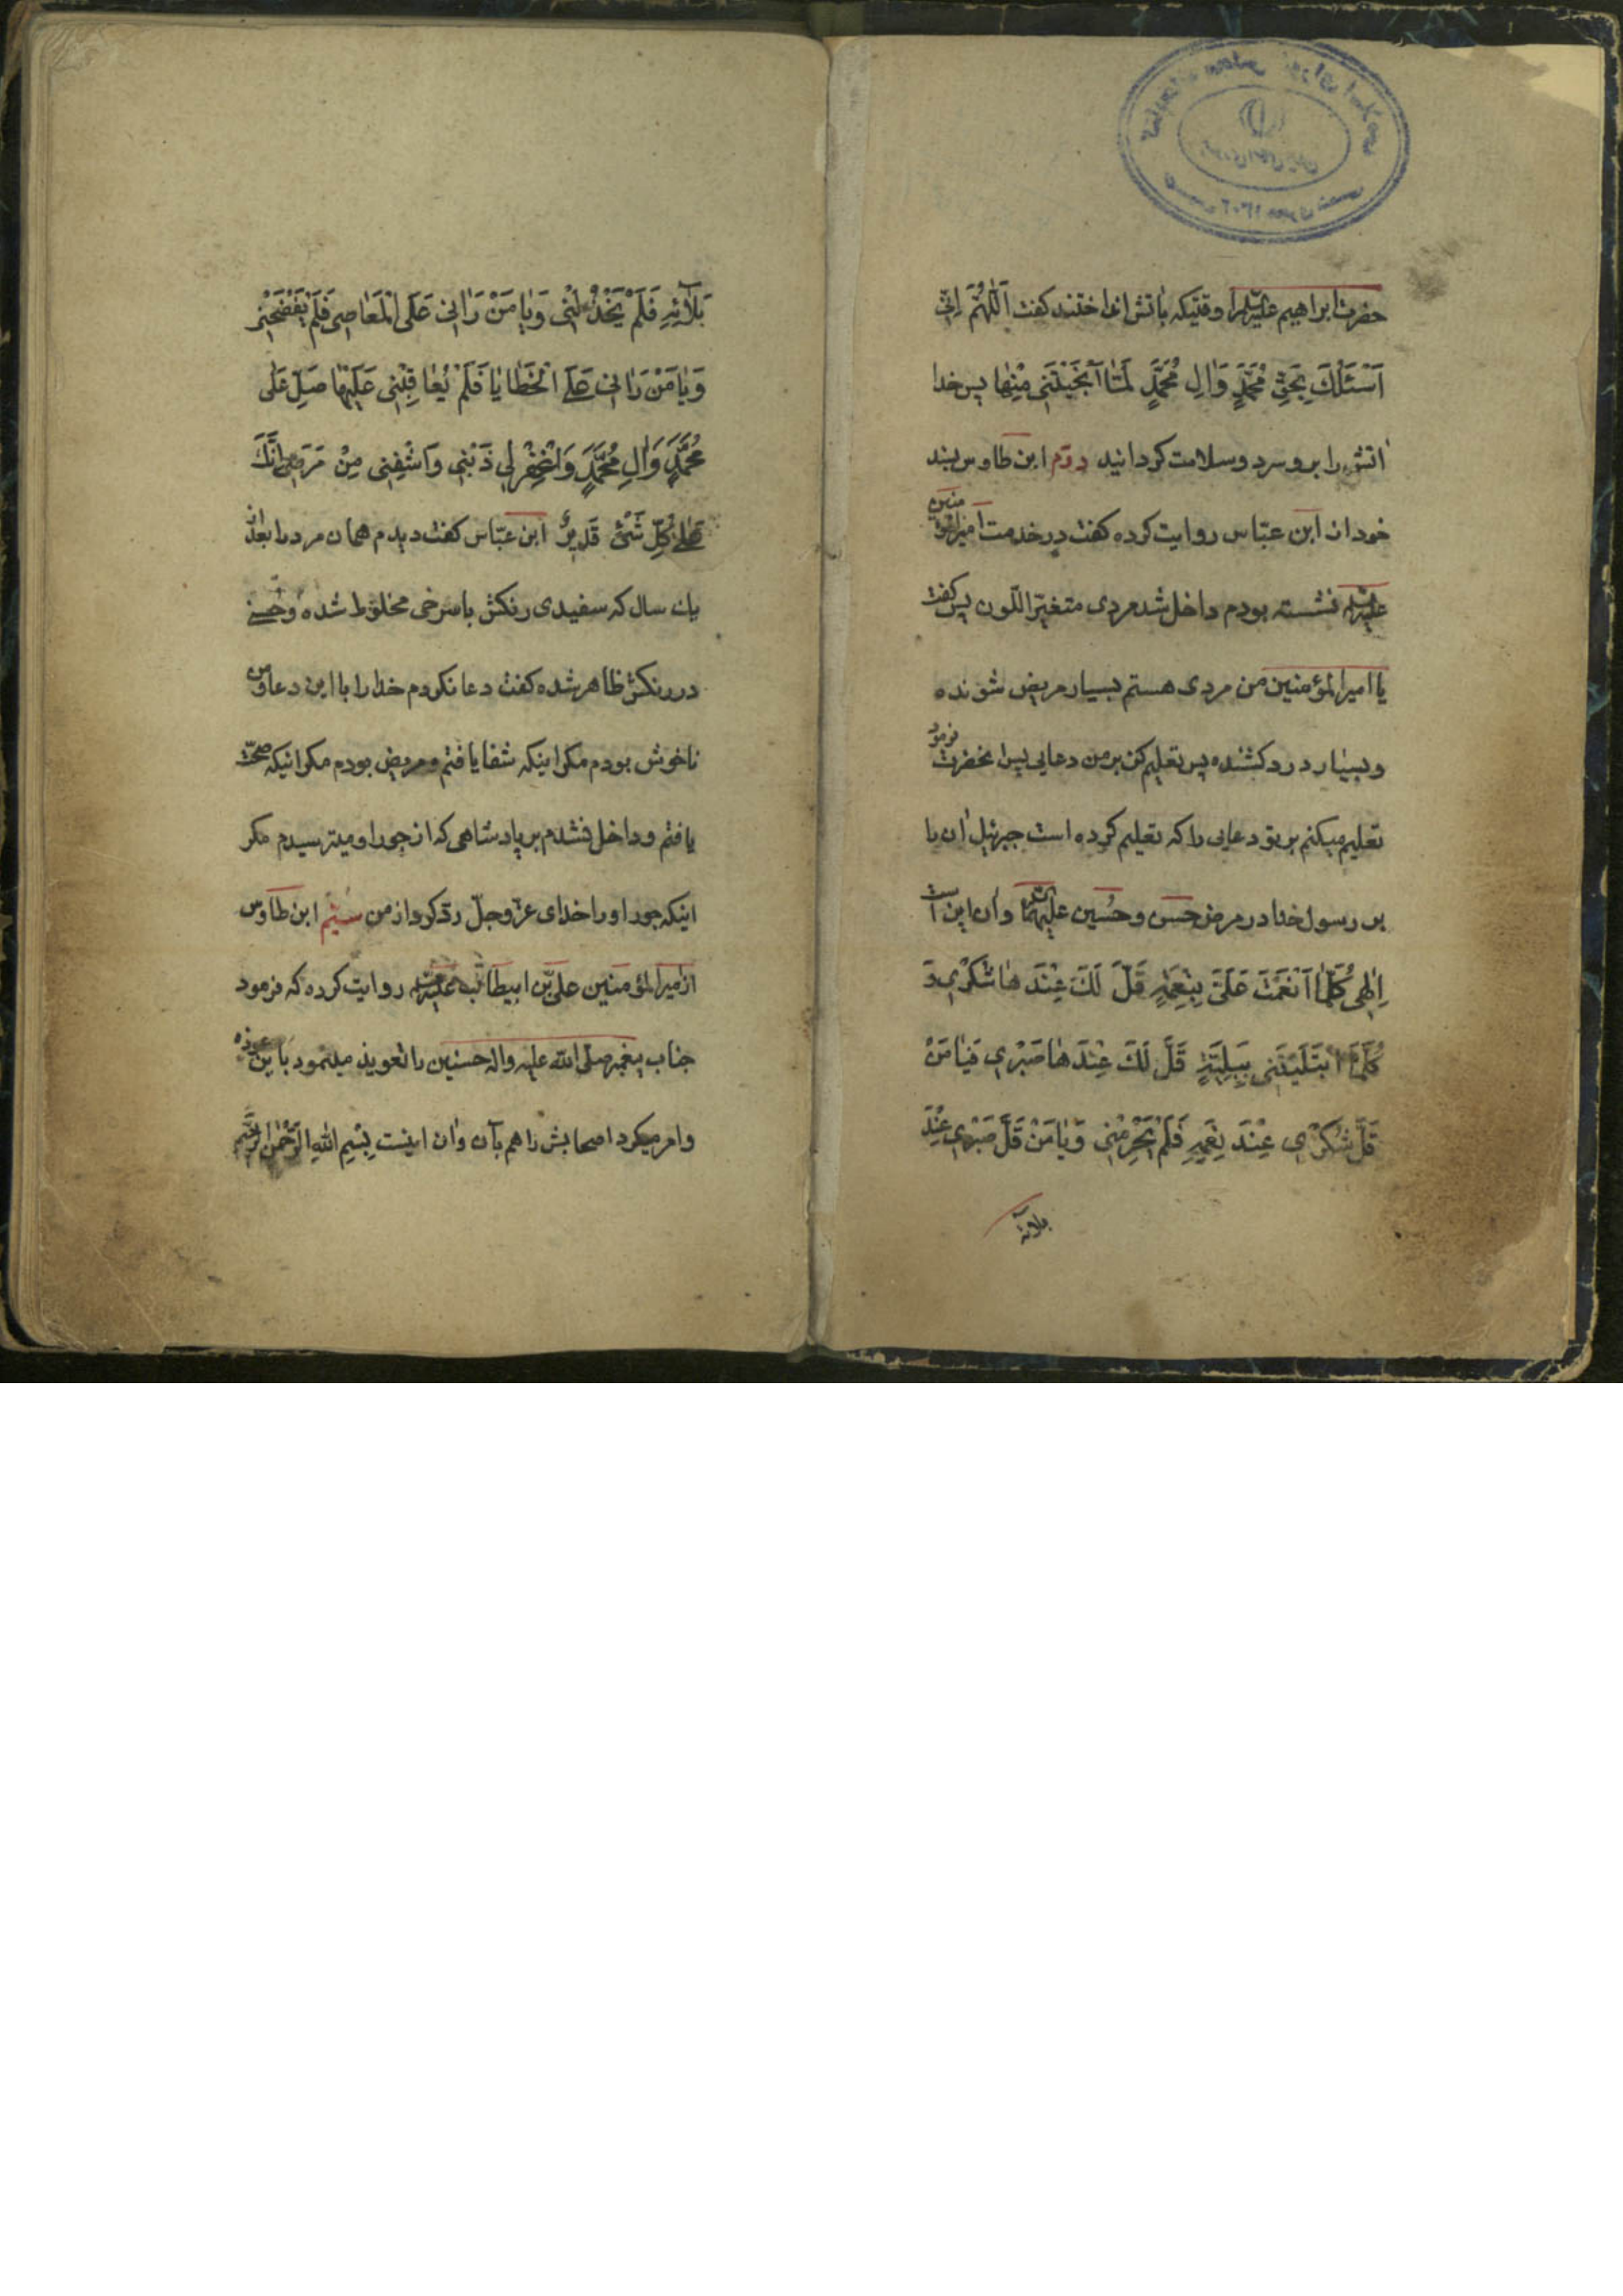 حضرت ابراهیم علیه‌السلام را وقتیکه باتش انداختند کفت اَللّٰهُمَّ اِنّی
اَسْئَلُكَ بِحَقِّ مُحَمَّدٍ وَاٰلِ مُحَمَّدٍ لَمّٰا اَنْجَیْتَنی مِنْهٰا پس خدا
اتش را برو سرد و سلامت کردانید دوّم ابن طاوس بسند
خود از ابن عبّاس روایت کرده کفت در خدمت امیرالمؤمنین
علیه‌السلام نشسته بودم داخل شد مردی متغیّر اللّون پس کفت
یا امیرالمؤمنین من مردی هستم بسیار مریض شونده
و بسیار درد کشنده پس تعلیم کن بر من دعایی پس انحضرت فرمود
تعلیم میکنم بر تو دعایی را که تعلیم کرده است جبرئیل ان را
بر رسول خدا در مرض حسن و حُسین علیهما و ان این است
اِلٰهی کُلَّمٰا اَنْعَمْتَ عَلَیَّ بِنِعْمَةٍ قَلَّ لَكَ عِنْدَهٰا شُکْری وَ
کُلَّمَا ابْتَلَیْتَنی بِبَلِیَّةٍ قَلَّ لَكَ عِنْدَهٰا صَبْری فَیٰا مَنْ
قَلَّ شُکْری عِنْدَ نِعَمِهِ فَلَمْ یَحْرِمْنی وَیٰا مَنْ قَلَّ صَبْری عِنْدَ
بلائه
بَلٰائِهِ فَلَمْ یَخْذُلْنی وَیٰا مَنْ رَاٰنی عَلَی الْمَعٰاصی فَلَمْ یَفْضَحْنی
وَیٰا مَنْ رَاٰنی عَلَی الْخَطٰایٰا فَلَمْ یُعٰاقِبْنی عَلَیْهٰا صَلِّ عَلٰی
مُحَمَّدٍ وَاٰلِ مُحَمَّدٍ وَاغْفِرْ لی ذَنْبی وَاشْفِنی مِنْ مَرَضی اِنَّكَ
عَلٰی کُلِّ شَیْئٍ قَدیرٌ ابن عبّاس کفت دیدم همان مرد را بعد از
یك سال که سفیدی رنکش با سرخی مخلوط شده و حُسنی
در رنکش ظاهر شده کفت دعا نکردم خدا را با این دعا و من
ناخوش بودم مکر اینکه شفا یافتم و مریض بودم مکر انیکه صحّت
یافتم و داخل نشدم بر پادشاهی که از جور او میترسیدم مکر
اینکه جور او را خدای عزّ و جلّ ردّ کرد از من سیّم ابن طاوس
از امیرالمؤمنین علیّ بن ابیطالب علیه‌السلام روایت کرده که فرمود
جناب پیغمبر صلّی الله علیه واله حسنین را تعویذ مینمود باین عوذه
و امر میکرد اصحابش را هم بآن و ان اینست بِسْمِ اللهِ الرَّحْمٰنِ الرَّحیمِ